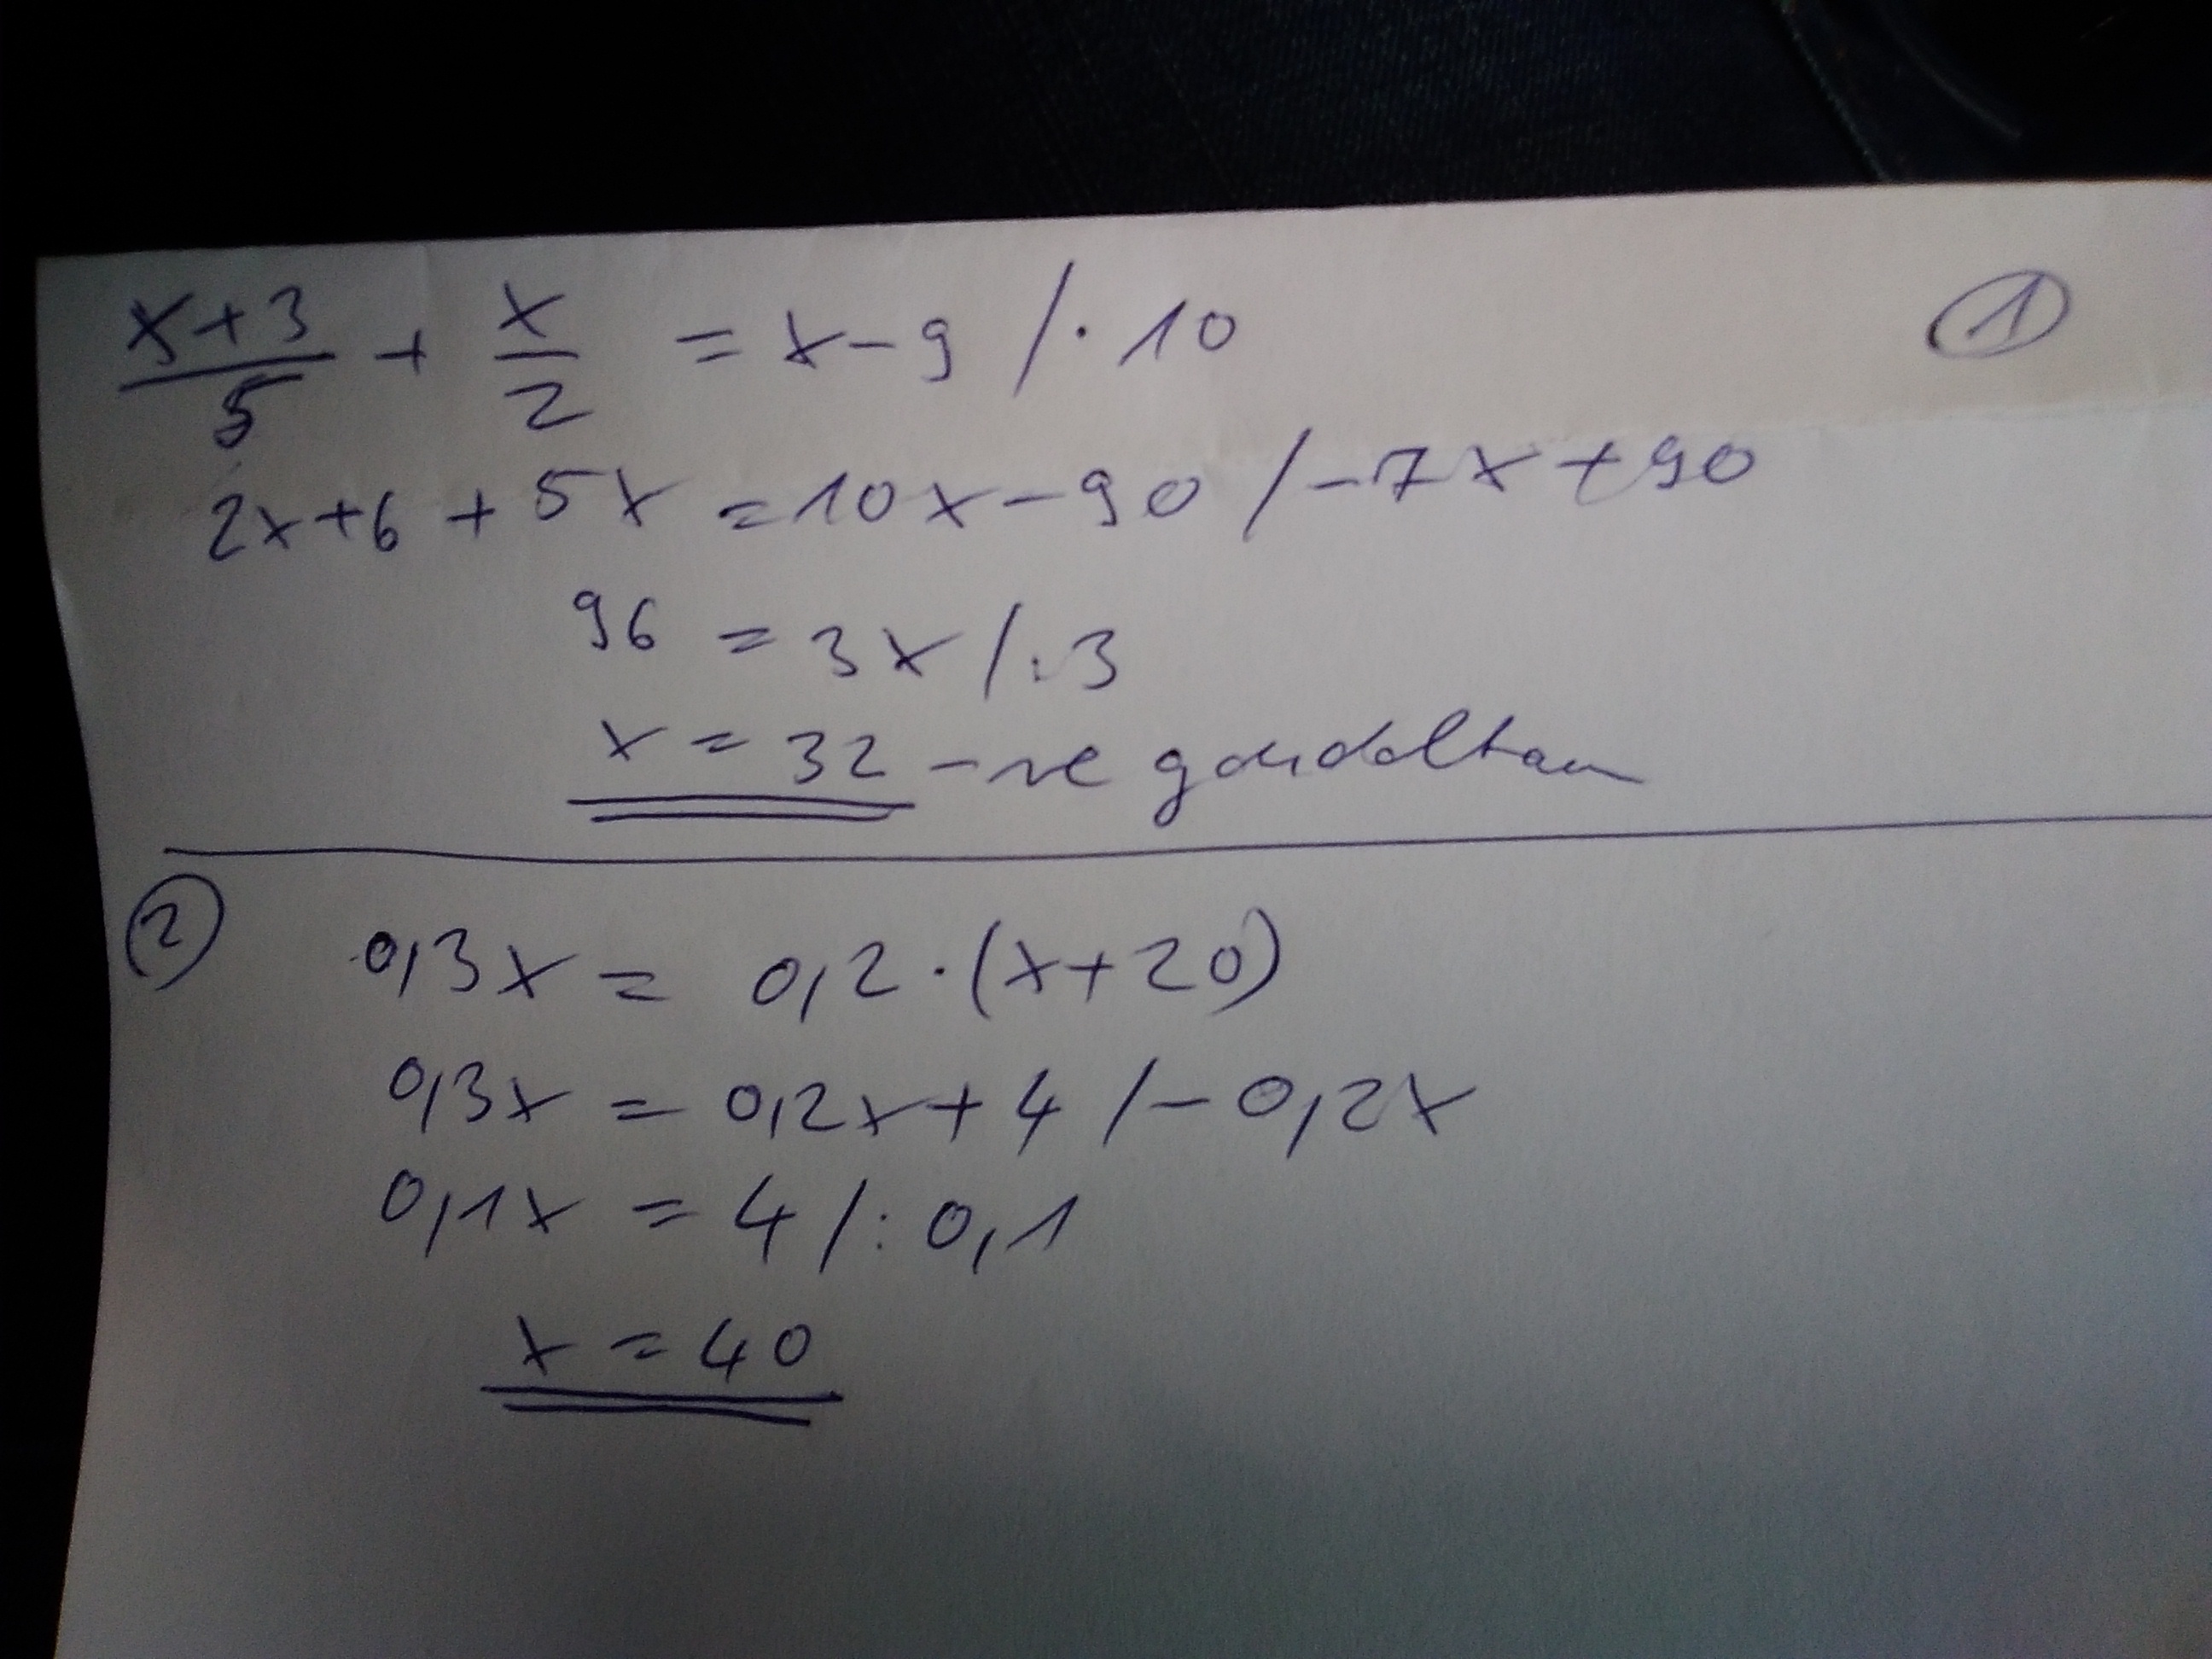 ①
x+3/5 + x/2 = x-9 /·10
2x+6+5x=10x-90 /-7x+90
96=3x /:3
x=32 -re gondoltam
②
0,3x = 0,2·(x+20)
0,3x = 0,2x+4 /-0,2x
0,1x = 4 /:0,1
x=40